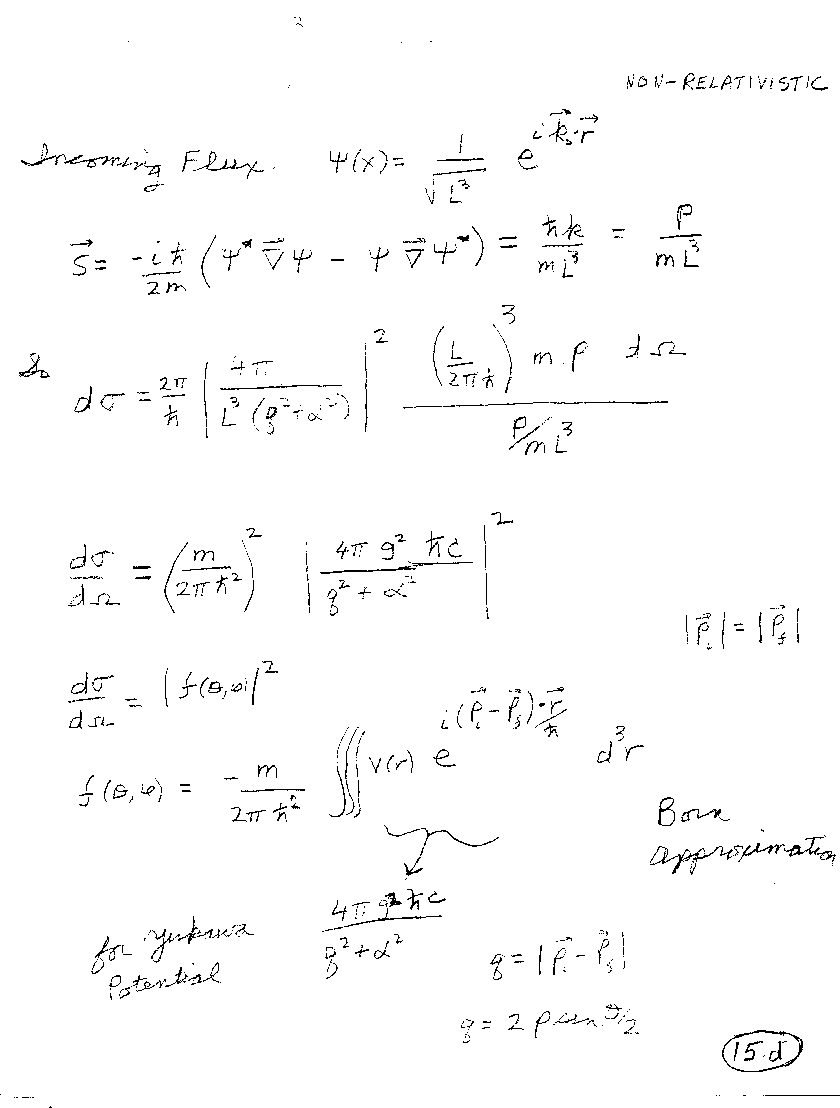 NON-RELATIVISTIC
Incoming Flux. ψ(x) = 1/√L³ e^{i k⃗₀·r⃗}
S⃗ = -iħ/2m (ψ* ∇⃗ψ - ψ ∇⃗ψ*) = ħk/mL³ = p/mL³
So
dσ = 2π/ħ |4π / L³(q²+α²)|² (L/2πħ)³ m p dΩ / (p/mL³)
dσ/dΩ = (m/2πħ²)² |4π g² ħc / q² + α²|²
|p⃗ᵢ| = |p⃗f|
dσ/dΩ = |f(θ,φ)|²
f(θ,φ) = -m/2πħ² ∭ V(r) e^{i(p⃗ᵢ - p⃗f)·r⃗/ħ} d³r
Born
approximation
for Yukawa
Potential
4π g² ħc / q² + α²
q = |p⃗ᵢ - p⃗f|
q = 2 p sin θ/2
15.d